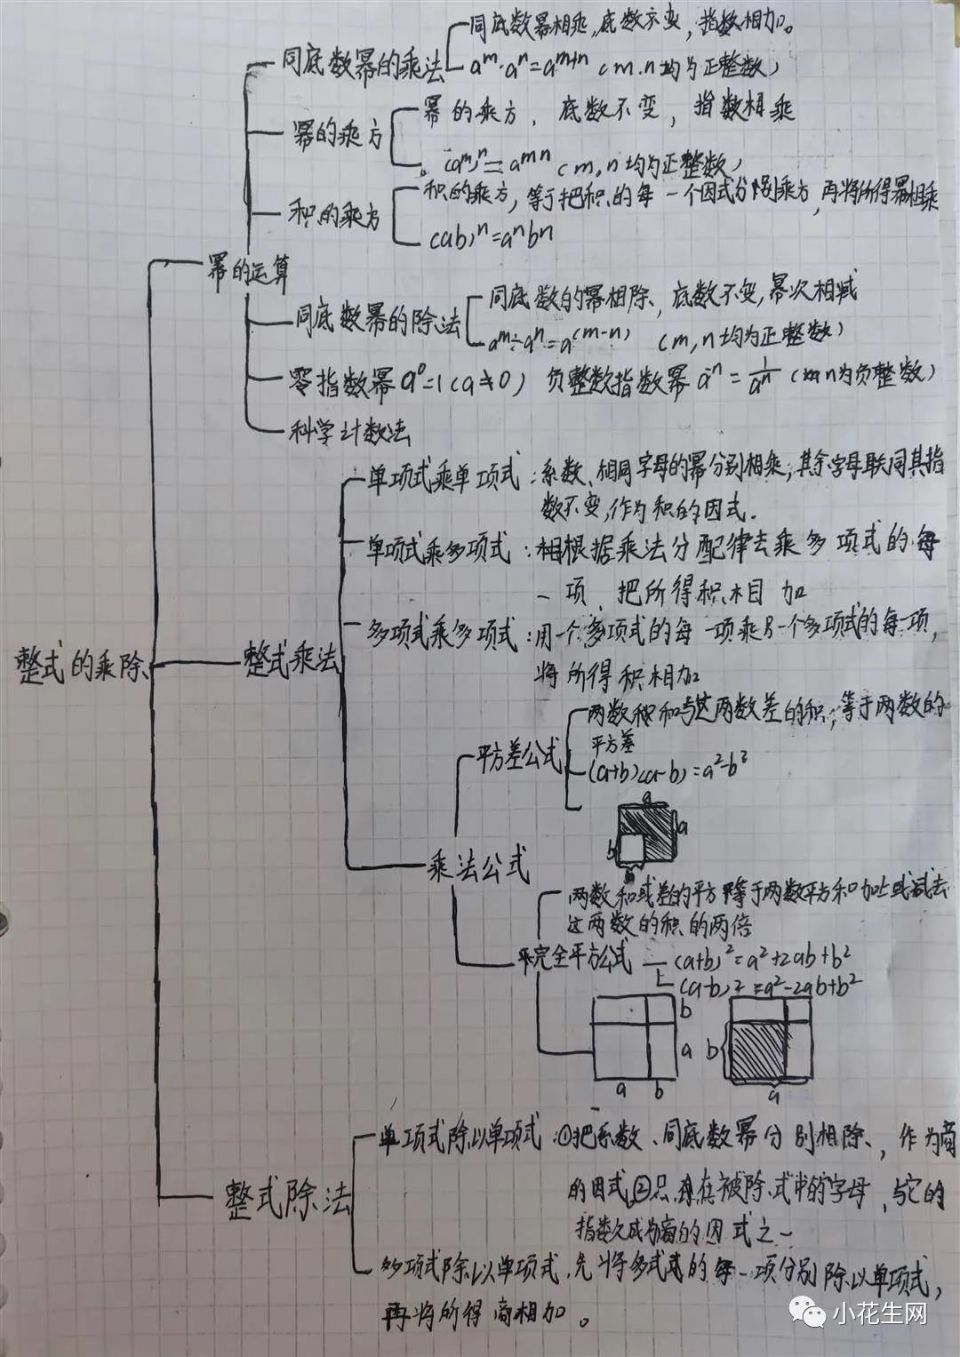 同底数幂相乘,底数不变,指数相加。
同底数幂的乘法
aᵐ·aⁿ=aᵐ⁺ⁿ (m.n均为正整数)
幂的乘方, 底数不变, 指数相乘
幂的乘方
(aᵐ)ⁿ=aᵐⁿ (m,n均为正整数)
积的乘方,等于把积的每一个因式分别乘方,再将所得幂相乘
积的乘方
(ab)ⁿ=aⁿbⁿ
幂的运算
同底数的幂相除、底数不变,幂次相减
同底数幂的除法
aᵐ÷aⁿ=a⁽ᵐ⁻ⁿ⁾ (m,n均为正整数)
零指数幂a⁰=1(a≠0) 负整数指数幂a⁻ⁿ=1/aⁿ (n为负整数)
科学计数法
单项式乘单项式:系数、相同字母的幂分别相乘,其余字母联同其指
数不变,作为积的因式.
单项式乘多项式:根据乘法分配律去乘多项式的每
一项 把所得积相加
多项式乘多项式:用一个多项式的每一项乘另一个多项式的每一项,
将所得积相加
整式的乘除
整式乘法
两数和与这两数差的积,等于两数的
平方差
平方差公式
(a+b)(a-b)=a²-b²
a
a
b
乘法公式
两数和或差的平方等于两数平方和加上或减去
这两数的积的两倍
完全平方公式
(a+b)²=a²+2ab+b²
(a-b)2=a²-2ab+b²
b
a
a b
b
a
单项式除以单项式:①把系数、同底数幂分别相除、作为商
的因式②只存在被除式中的字母,与它的
指数成为商的因式之一
整式除法
多项式除以单项式,先将多式的每一项分别除以单项式,
再将所得商相加。
小花生网